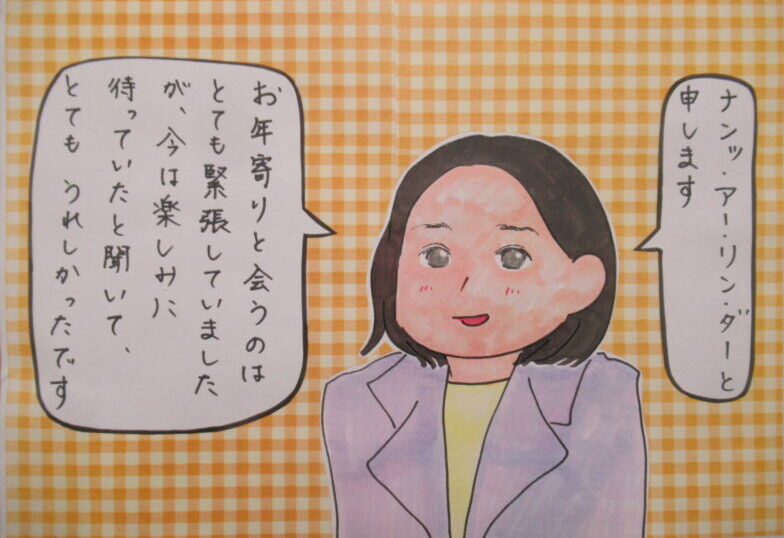 ナンッ・アー・リン・ダーと
申します
お年寄りと会うのは
とても緊張していました
が、今は楽しみに
待っていたと聞いて、
とても うれしかったです